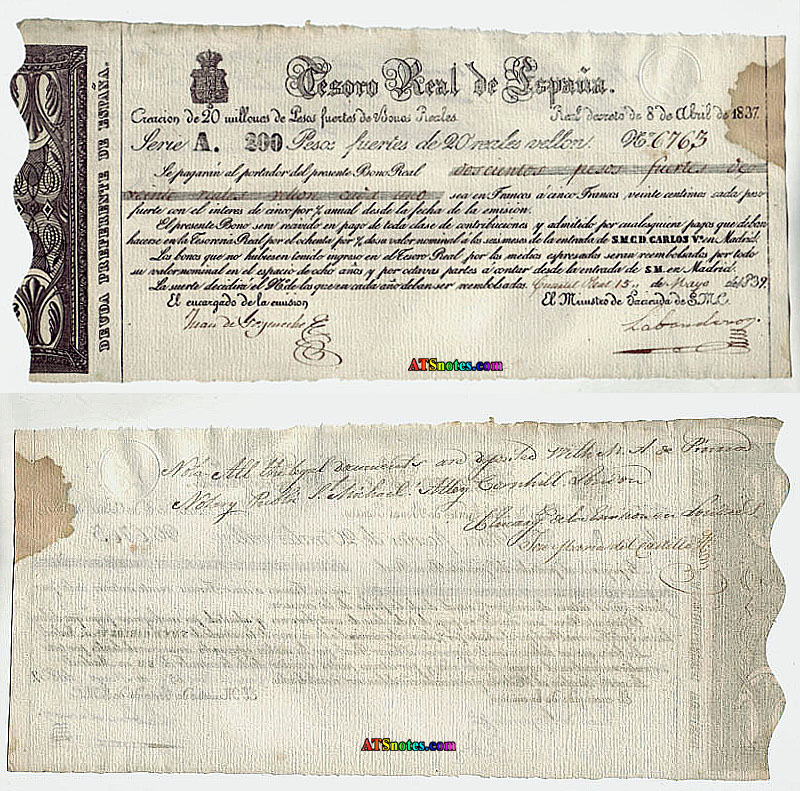 DEUDA PREFERENTE DE ESPAÑA.
Tesoro Real de España.
Creacion de 20 millones de Pesos fuertes de Bonos Reales. Real decreto de 8 de Abril de 1837.
Serie A. 200 Pesos fuertes de 20 reales vellon. Nº 6763
Se pagarán al portador del presente Bono Real doscientos pesos fuertes de
veinte reales vellon cada uno sea en Francos á cinco Francos, veinte centimos cada peso
fuerte con el interes de cinco por % anual desde la fecha de la emision.
El presente Bono será recivido en pago de toda clase de contribuciones y admitido por cualesquiera pagos que deban
hacerse en la Tesoreria Real por el ochenta por % de su valor nominal á los seis meses de la entrada de S.M.C.D. CARLOS Vº. en Madrid.
Los bonos que no hubiesen tenido ingreso en el Tesoro Real por los medios espresados serán reembolsados por todo
su valor nominal en el espacio de ocho años y por octavas partes á contar desde la entrada de S.M. en Madrid.
La suerte decidirá el Nº de las que en cada año deban ser reembolsadas. Cuartel Real 15 de Mayo de 1839.
El encargado de la emision El Ministro de Hacienda de S.M.C.
Juan de
Labandero
ATSnotes.com
Nota All the legal documents are deposited with M. A. de
Notary Public St Michael's Alley Cornhill London
de la emision en Londres
Jose Maria del Castillo
ATSnotes.com